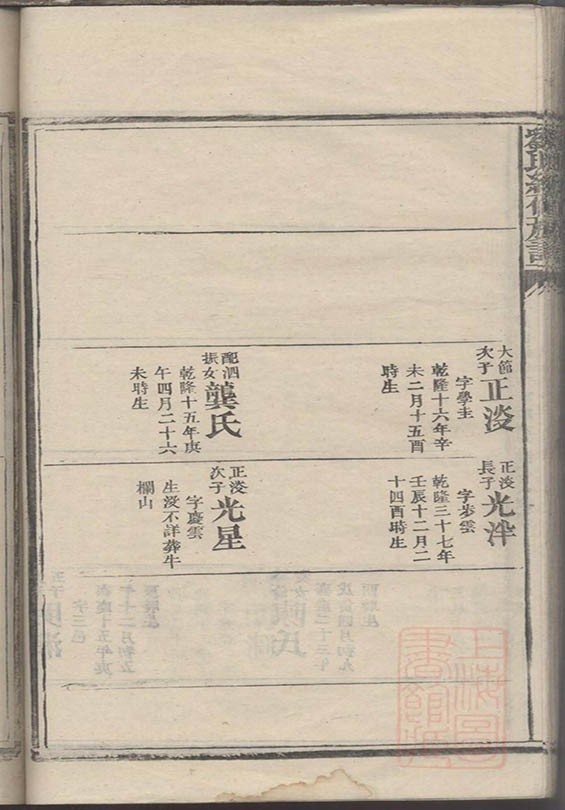 大節
次子
正淩
字學圭
乾隆十六年辛
未二月十五酉
時生
配泗
振女
龔氏
乾隆十五年庚
午四月二十六
未時生
正淩
長子
光泮
字步雲
乾隆三十七年
壬辰十二月二
十四酉時生
正淩
次子
光星
字慶雲
生沒不詳葬牛
欄山
上海圖
書館藏